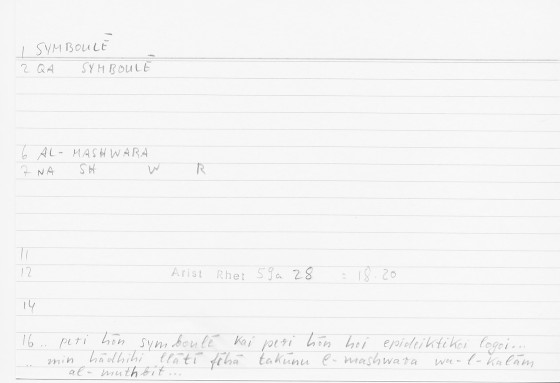 1 SYMBOULĒ
2 QA SYMBOULĒ
6 AL-MASHWARA
7 NA SH W R
11
12 Arist Rhet 59a 28 : 18.20
14
16 .. peri hōn symboulē kai peri hōn hoi epideiktikoi logoi...
.. min hādhihi llātī fīhā takūnu l-mashwara wa-l-kalām
al-muthbit...